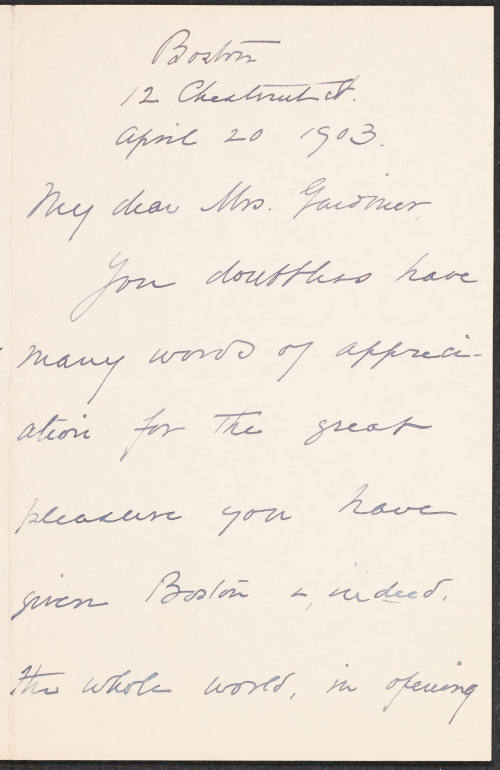 Boston
12 Chestnut St.
April 20 1903.
My dear Mrs. Gardiner,
You doubtless have
many words of appreci-
ation for the great
pleasure you have
given Boston &, indeed,
the whole world, in opening